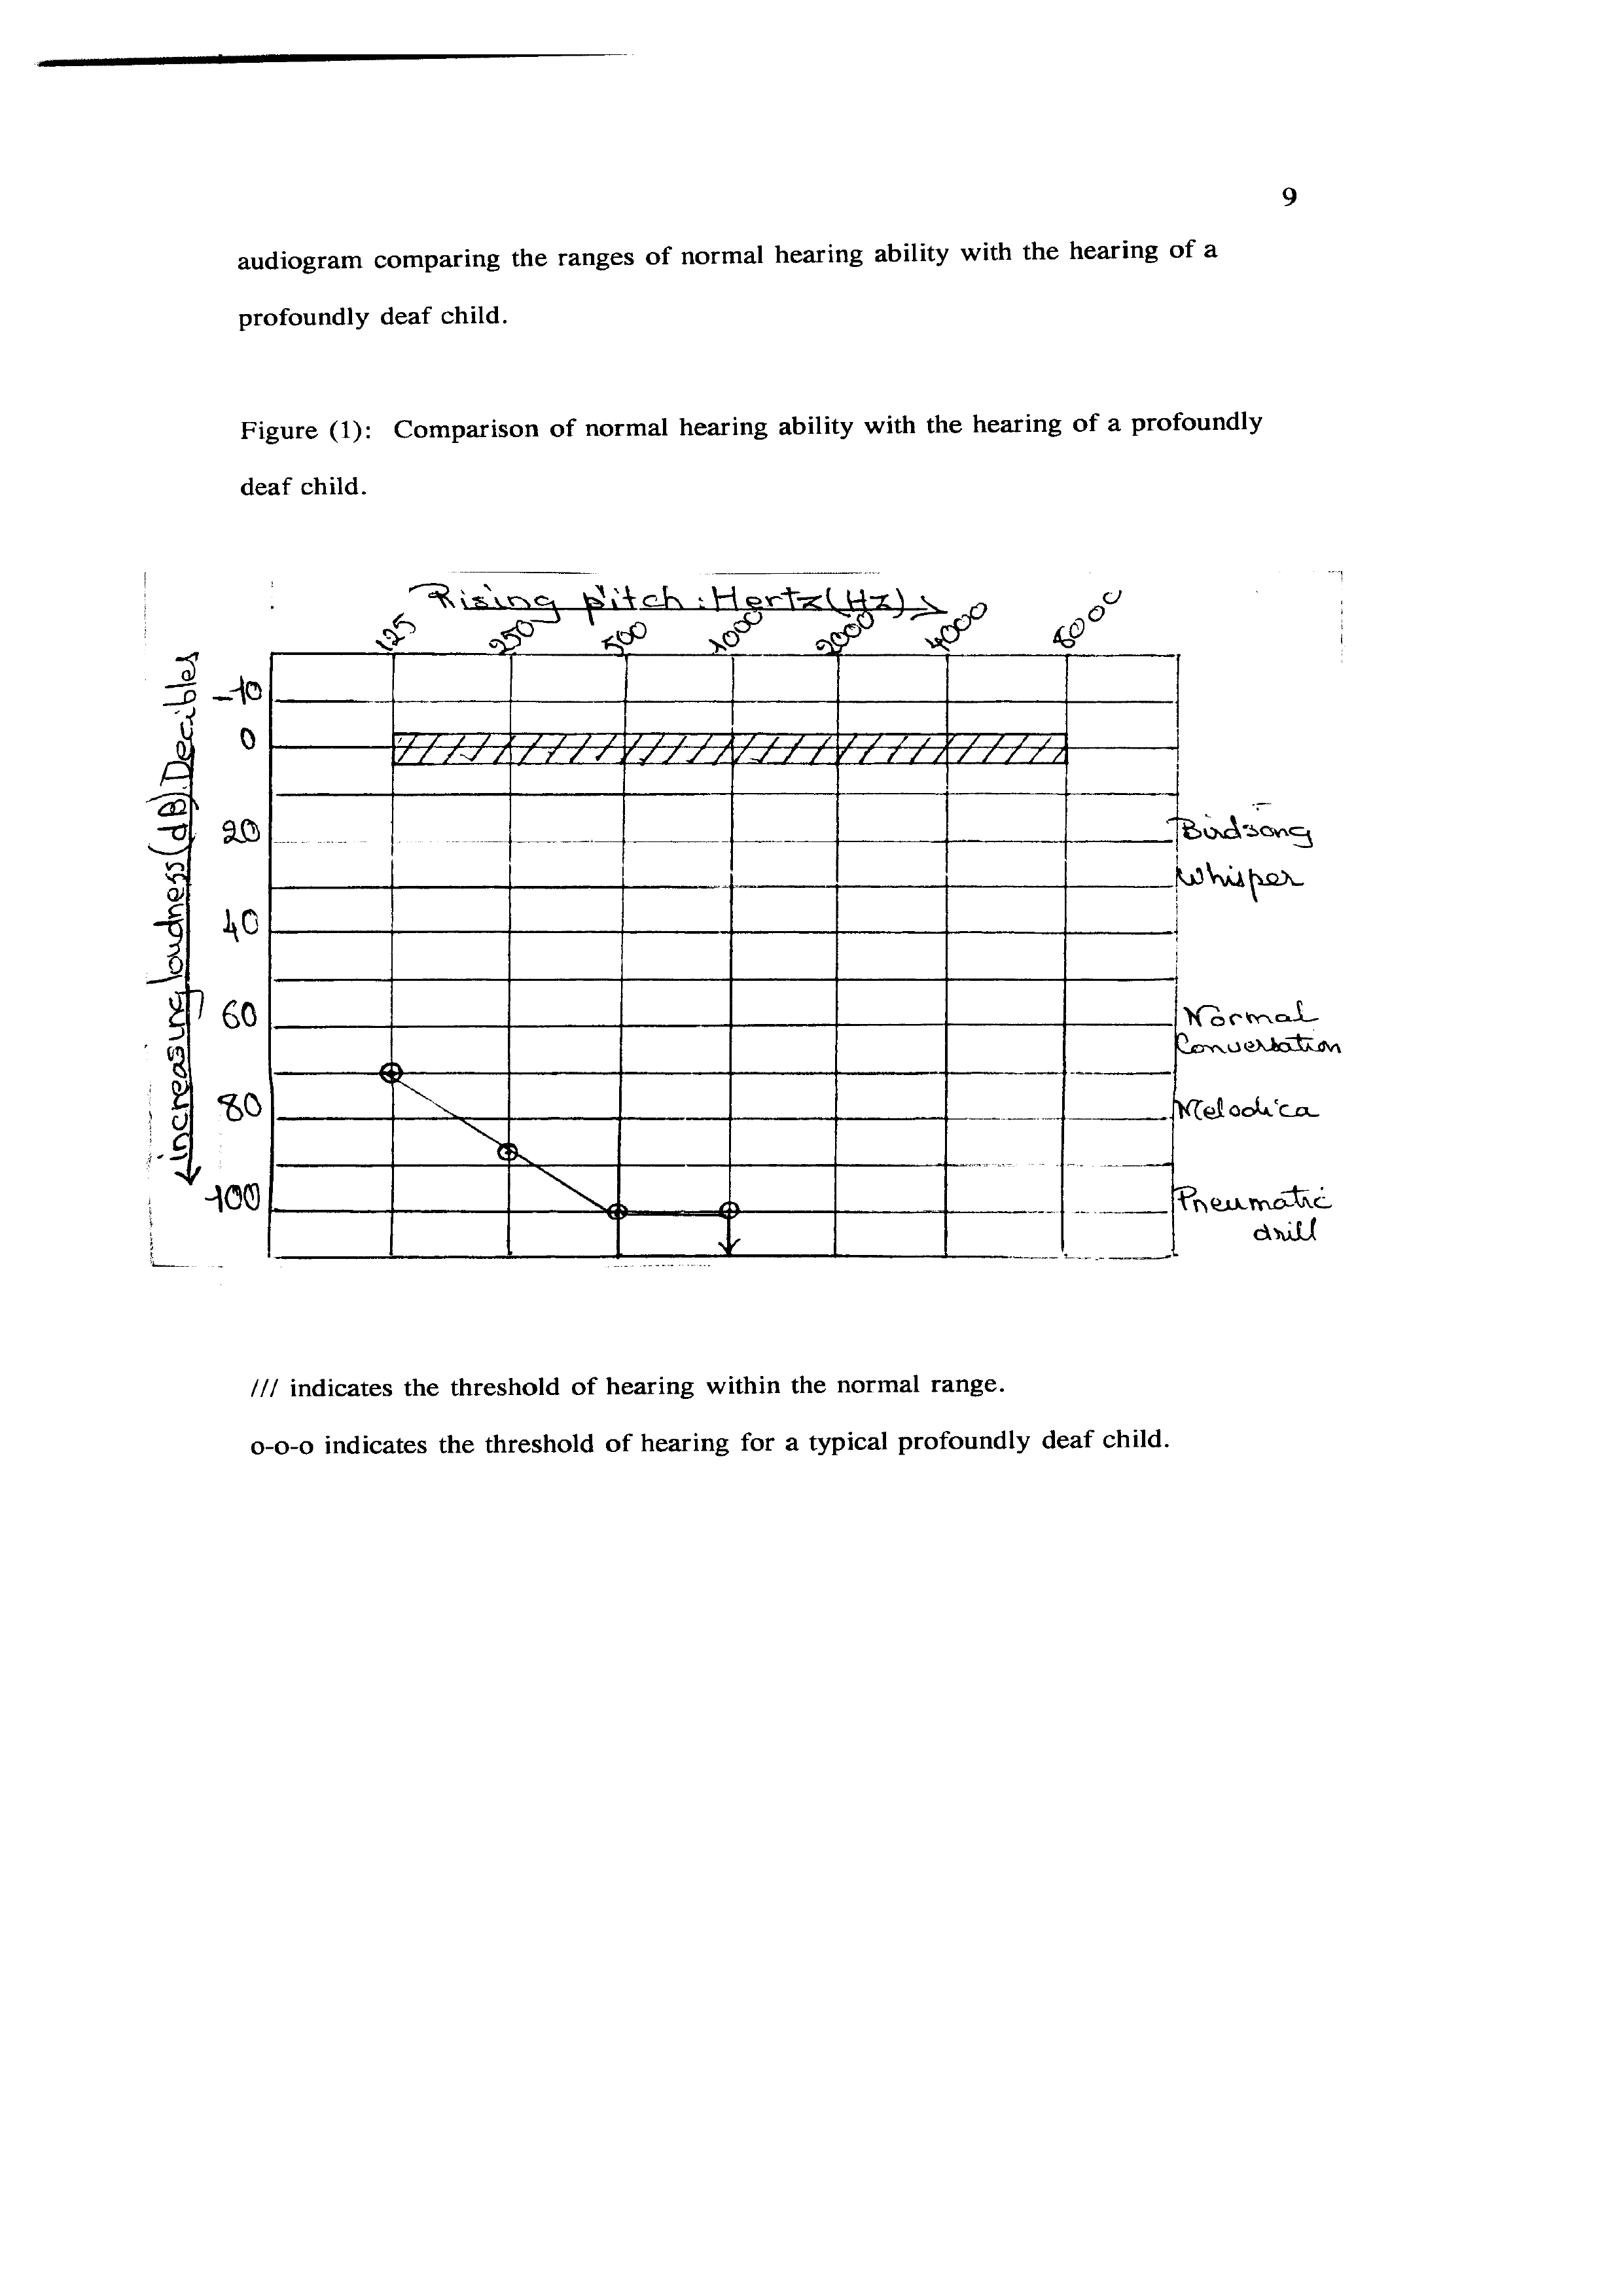 9
audiogram comparing the ranges of normal hearing ability with the hearing of a
profoundly deaf child.
Figure (1): Comparison of normal hearing ability with the hearing of a profoundly
deaf child.
Rising pitch : Hertz (Hz)
125 250 500 1000 2000 4000 8000
increasing loudness (dB). Decibles
-10
0
20
Birdsong
Whisper
40
60
Normal
Conversation
80
Melodica
100
Pneumatic
drill
/// indicates the threshold of hearing within the normal range.
o-o-o indicates the threshold of hearing for a typical profoundly deaf child.